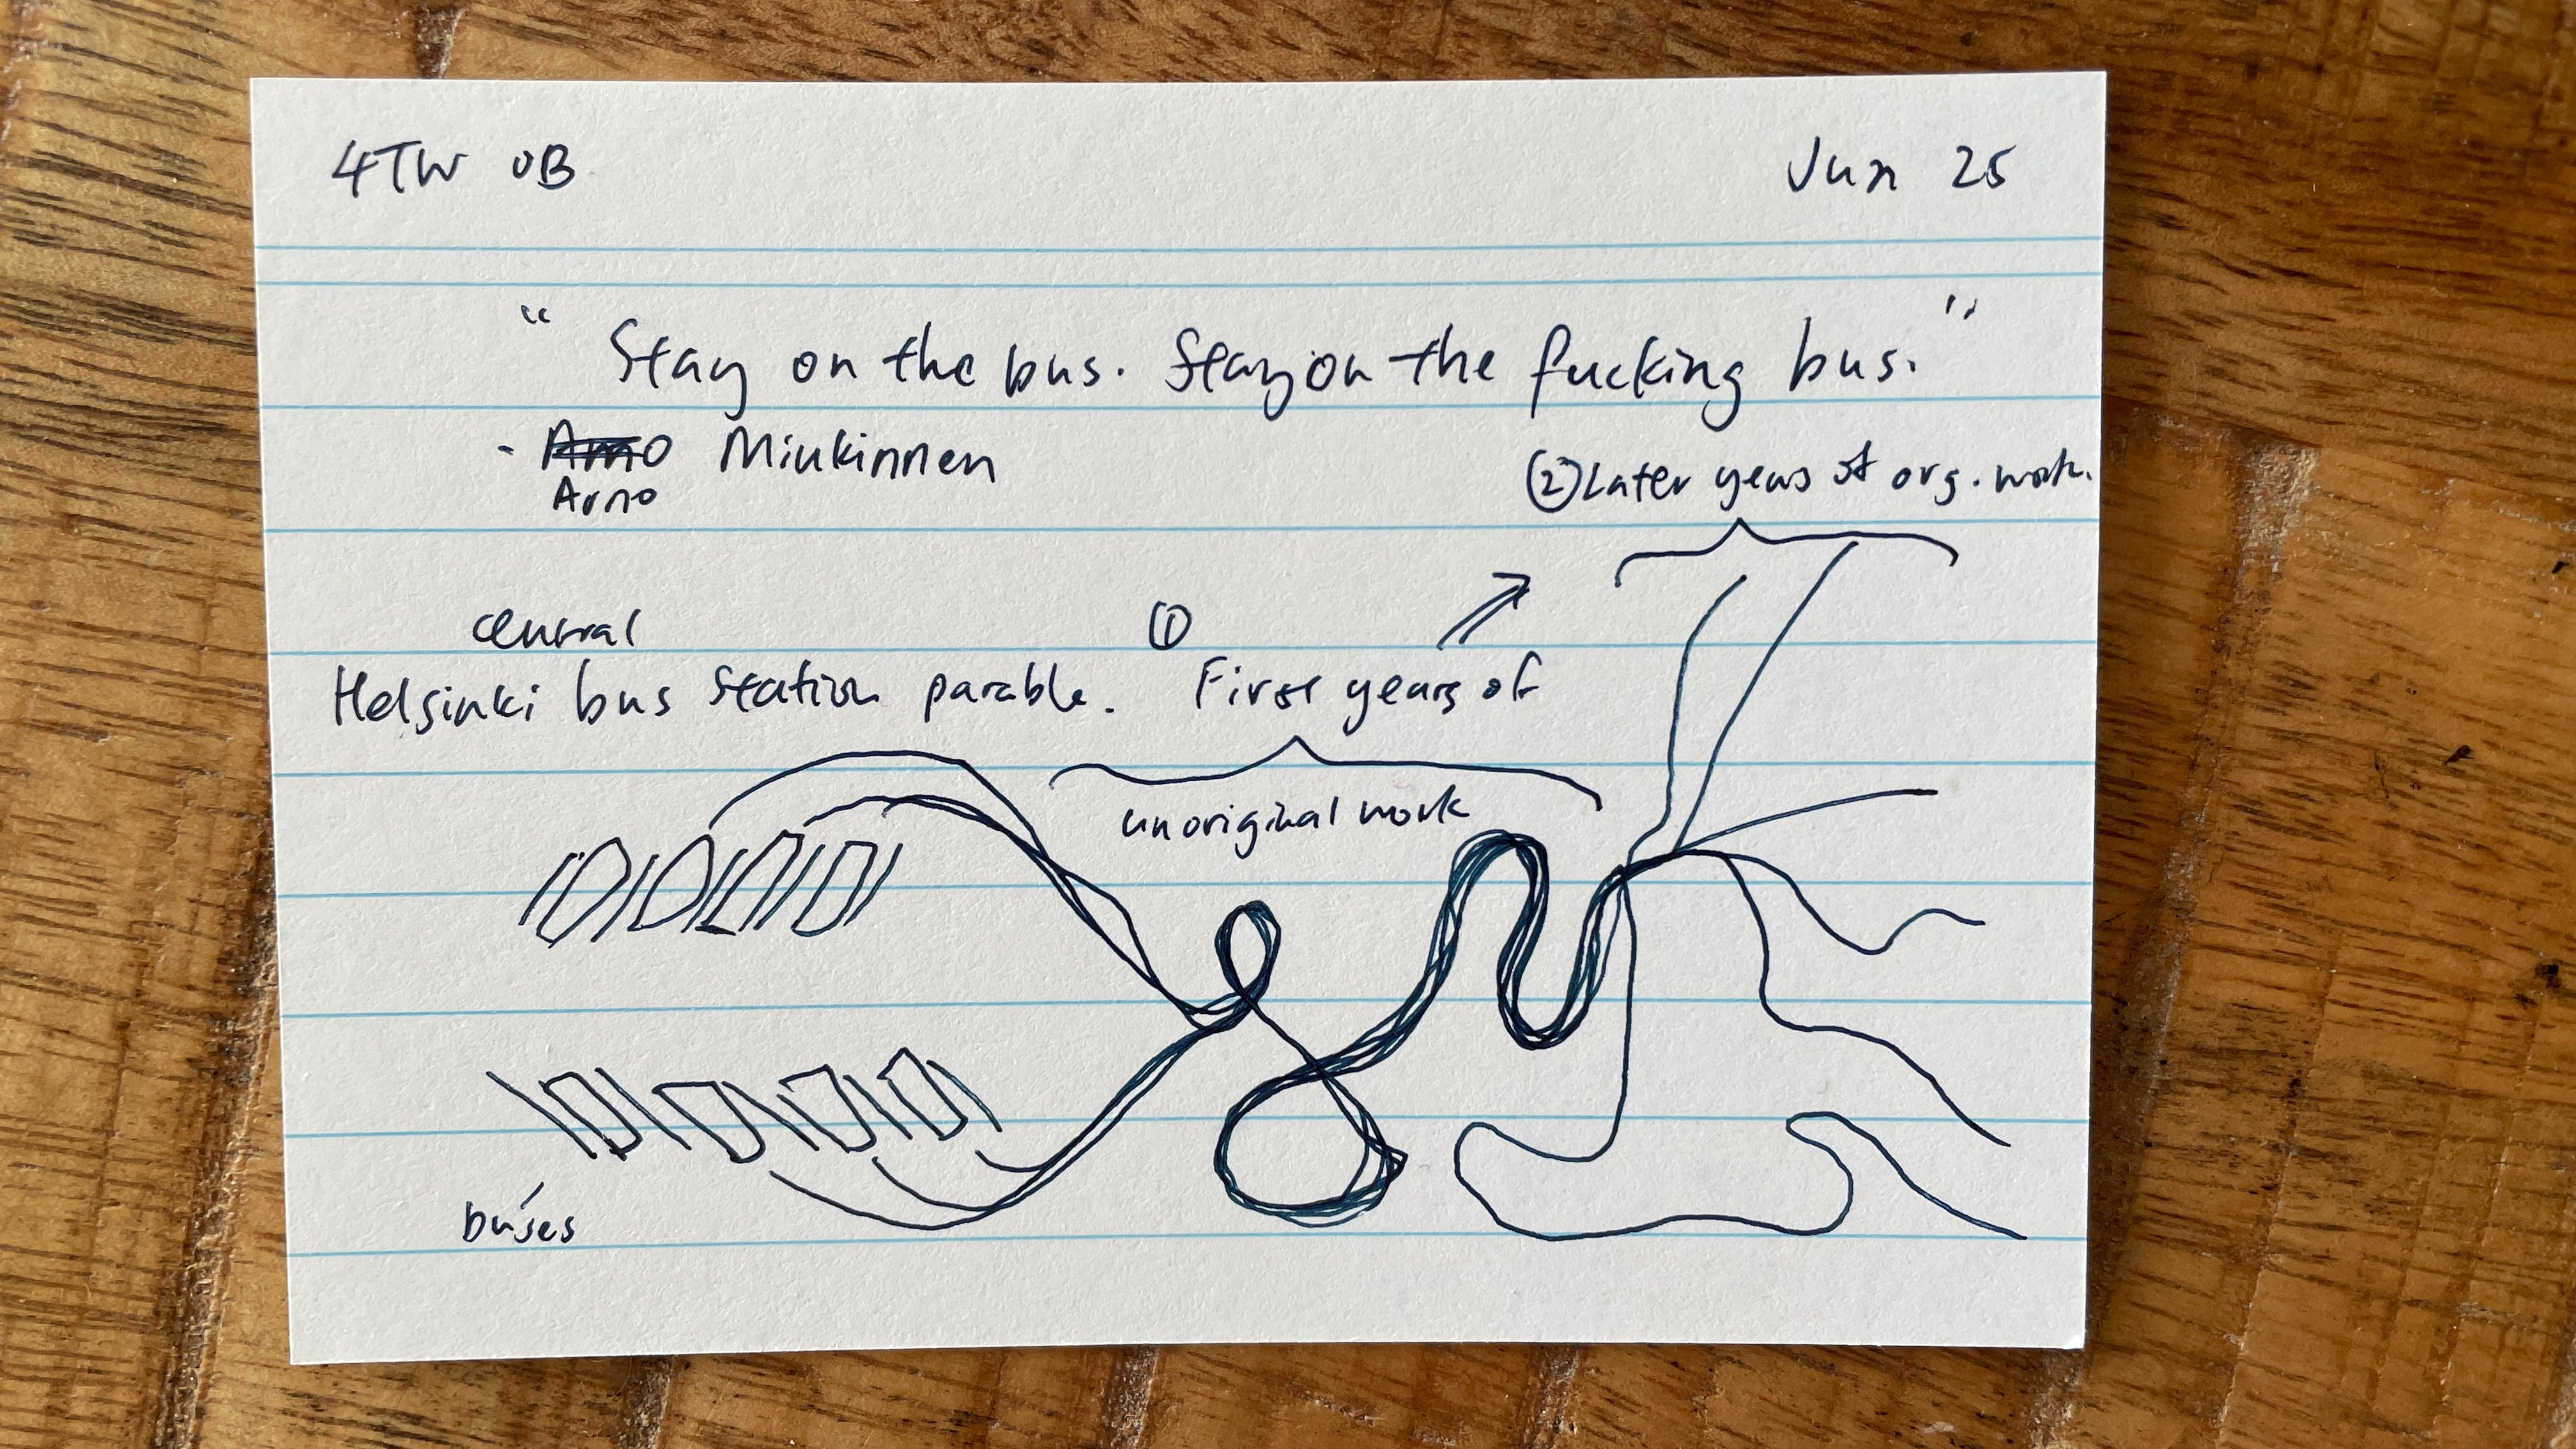 4TW OB
Jun 25
“Stay on the bus. Stay on the fucking bus.”
- Arno Minkinnen
Arno
② Later years of org. work.
central
Helsinki bus station parable.
①
First years of
unoriginal work
buses